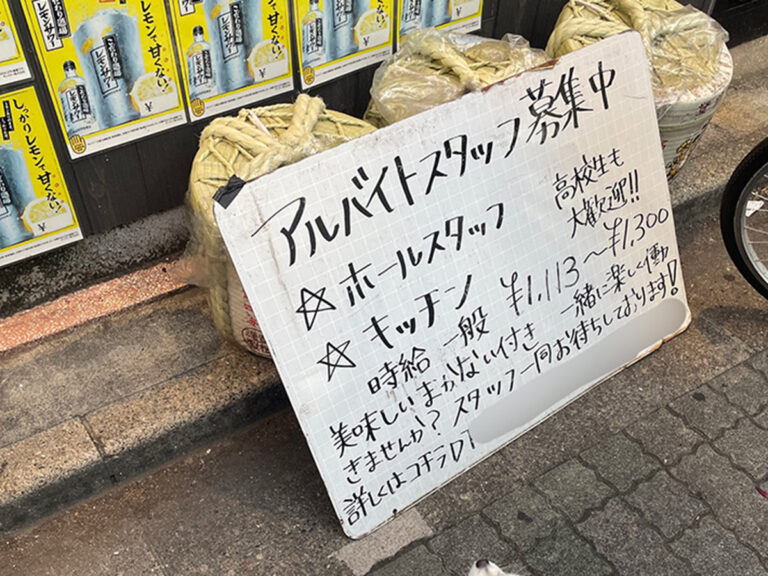 アルバイトスタッフ募集中
☆ホールスタッフ
高校生も
大歓迎!!
☆キッチン
時給 一般 ¥1,113〜¥1,300
美味しいまかない付き 一緒に楽しく働
きませんか?スタッフ一同お待ちしております!
詳しくはコチラ
しっかりレモンで甘くない。
こだわり酒場
レモンサワー
¥